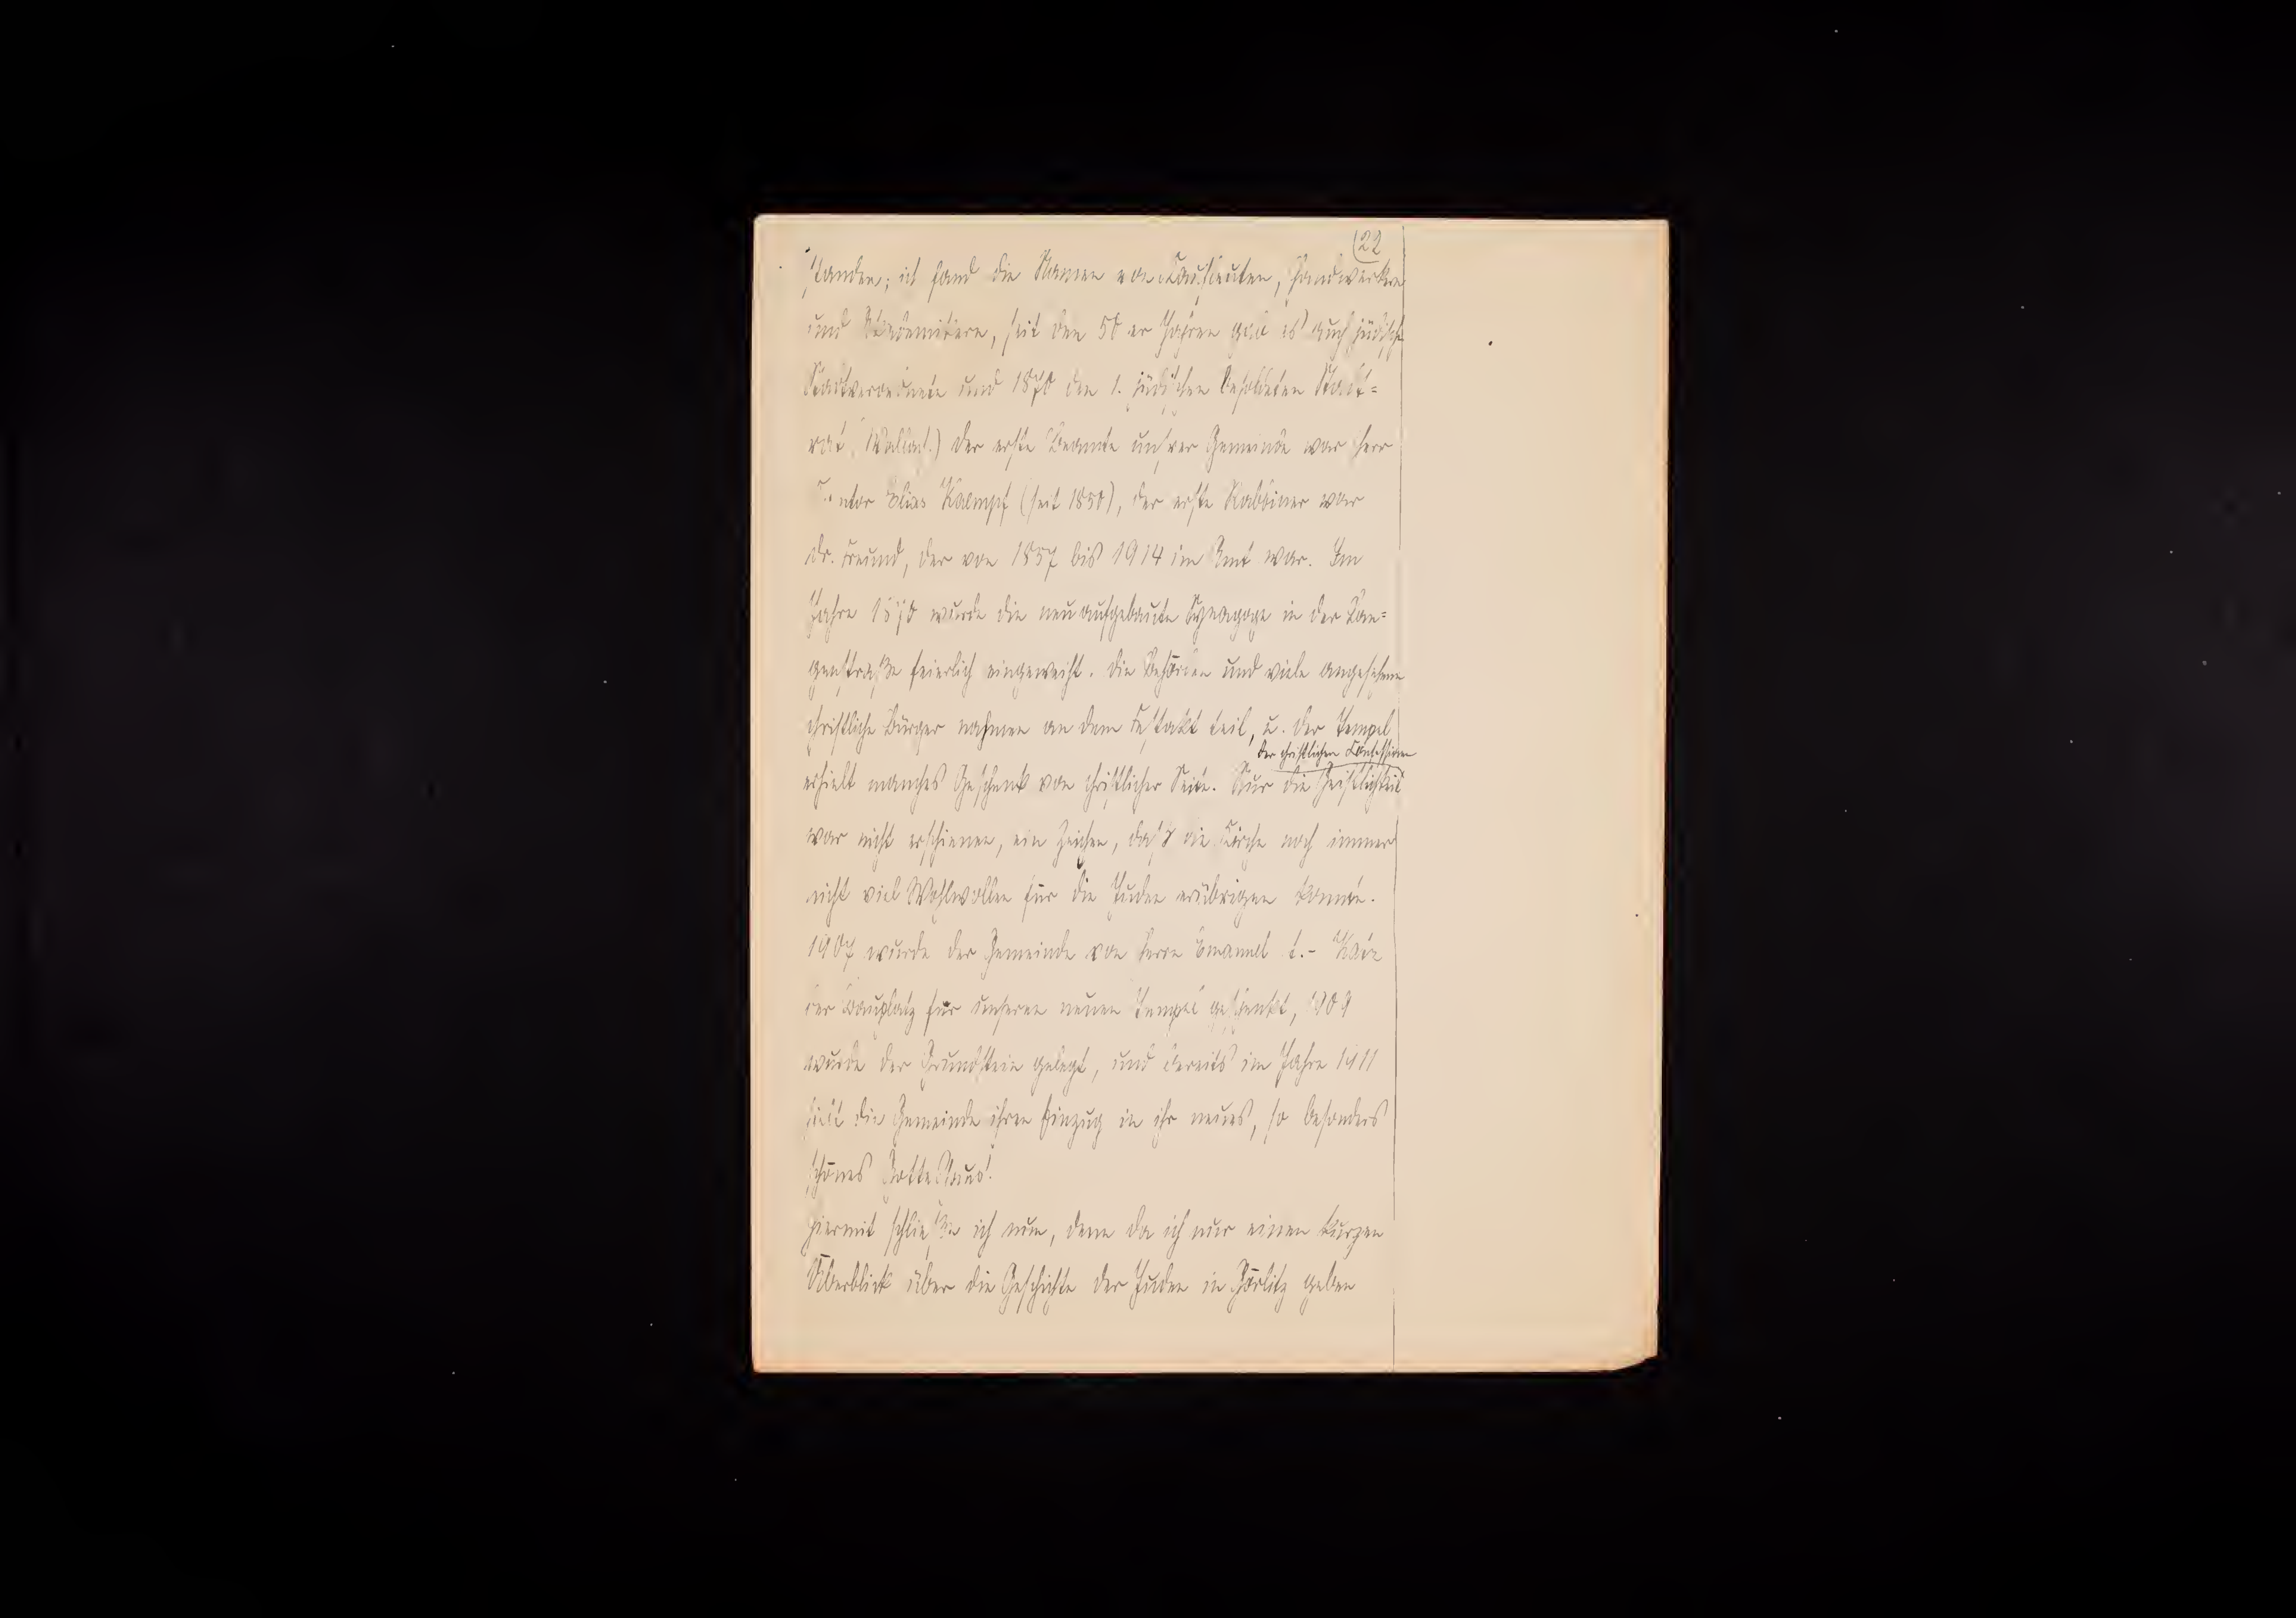 (22
standen; ich fand die Namen von Kaufleuten, Handwerkern
und Akademikern, seit den 50er Jahren gab es auch jüdische
Stadtverordnete und 1870 den 1. jüdischen besoldeten Stadt=
rat Der erste Beamte unsrer Gemeinde war Herr
Kantor Elias Kaempf (seit 1850), der erste Rabbiner war
Dr. Freund, der von 1857 bis 1914 im Amt war. Im
Jahre wurde die neu aufgebaute Synagoge in der Lan=
genstraße feierlich eingeweiht. Die Behörden und viele angesehene
christliche Bürger nahmen an dem Festakt teil, u. der Tempel
der christlichen Confessionen
erhielt manches Geschenk von christlicher Seite. Nur die Geistlichkeit
war nicht erschienen, ein Zeichen, daß die Kirche noch immer
nicht viel Wohlwollen für die Juden erübrigen konnte.
1907 wurde der Gemeinde von Herrn Emanuel
der Bauplatz für unseren neuen Tempel geschenkt, 1909
wurde der Grundstein gelegt, und bereits im Jahre 1911
hielt die Gemeinde ihren Einzug in ihr neues, so besonders
schönes Gotteshaus!
Hiermit schließe ich nun, denn da ich nur einen kurzen
Überblick über die Geschichte der Juden in Görlitz geben